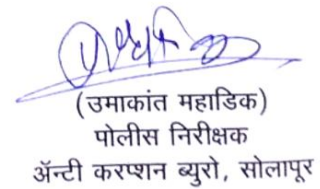 (उमाकांत महाडिक)
पोलीस निरीक्षक
ॲन्टी करप्शन ब्युरो, सोलापूर